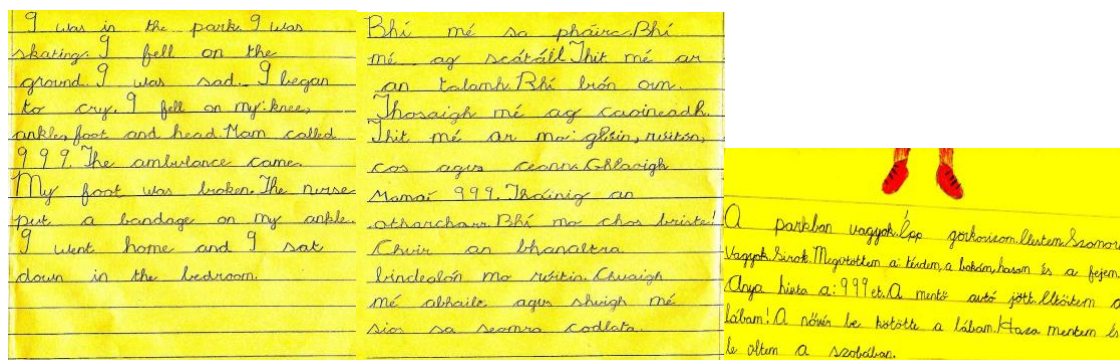 I was in the park. I was
skating. I fell on the
ground. I was sad. I began
to cry. I fell on my: knee,
ankle, foot and head. Mam called
999. The ambulance came.
My foot was broken. The nurse
put a bandage on my ankle.
I went home and I sat
down in the bedroom.
Bhí mé sa pháirc. Bhí
mé ag scátáil. Thit mé ar
an talamh. Bhí brón orm.
Thosaigh mé ag caoineadh.
Thit mé ar mo: ghlúin, rúitín,
cos agus ceann. Ghlaoigh
Mamaí 999. Tháinig an
otharcharr. Bhí mo chos briste!
Chuir an bhanaltra
bindealán mo rúitín. Chuaigh
mé abhaile agus shuigh mé
síos sa seomra codlata.
A parkban vagyok. Épp görkorizom. Elestem. Szomorú
Vagyok. Sirok. Megütöttem a: térdem, a bokám, hasom és a fejem.
Anya hívta a: 999 et. A mentő autó jött. Eltöttem a
lábam! A nővér be kötötte a lábam. Haza mentem és
le ültem a szobában.